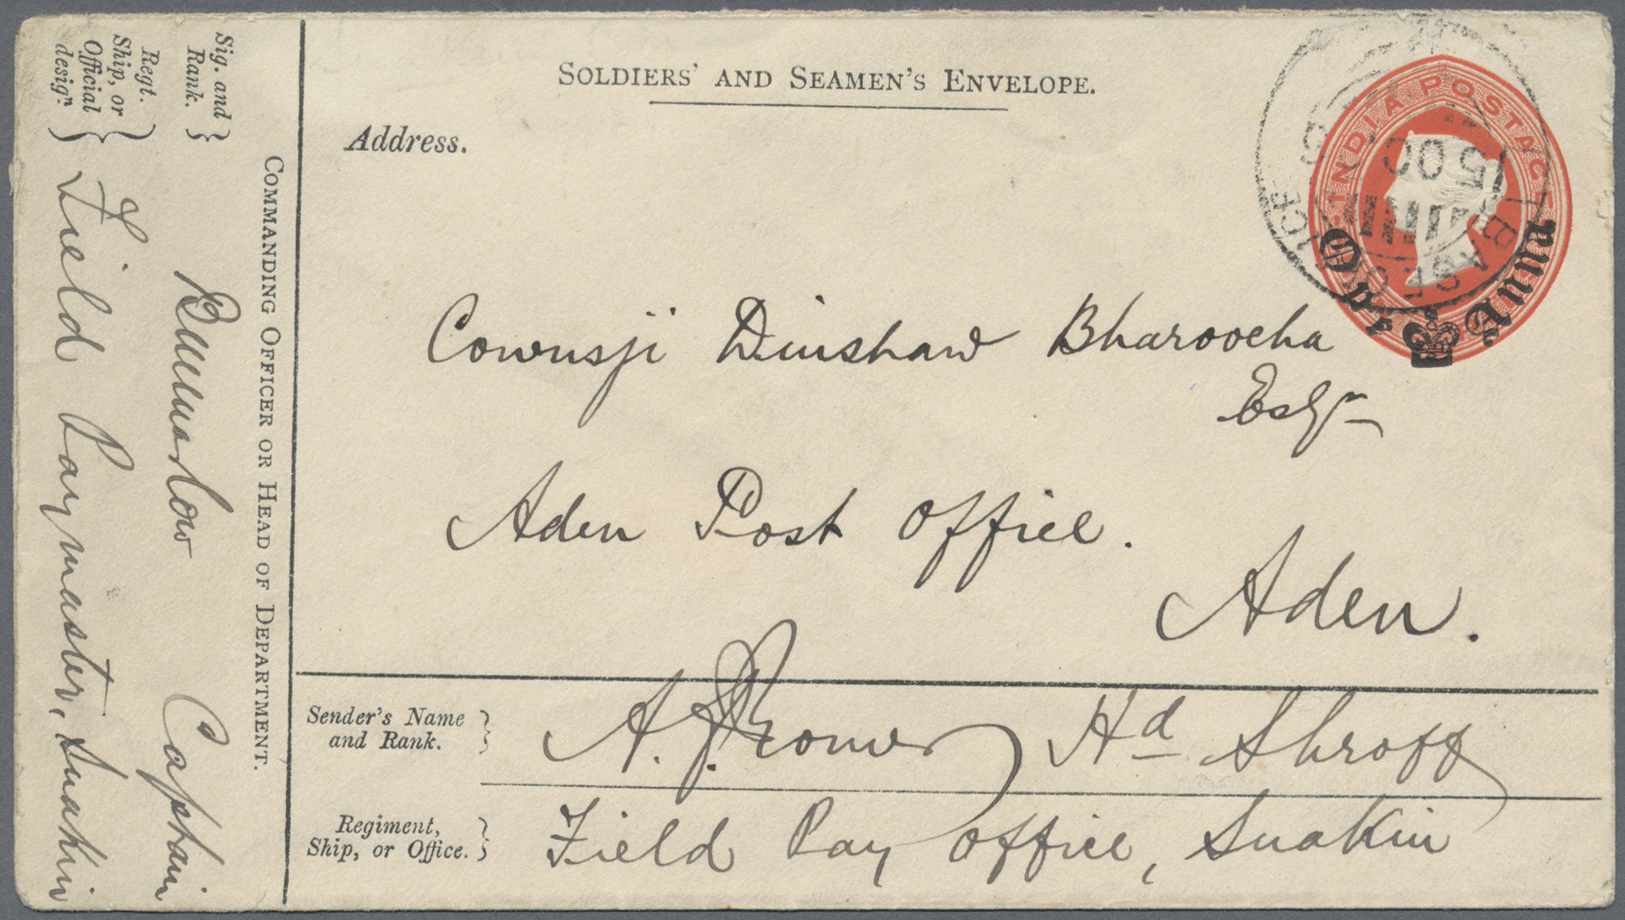 SOLDIERS' AND SEAMEN'S ENVELOPE.
Address.
INDIA POSTAGE
One Anna
5 OC
BASE OFFICE
Cowusji Dinshaw Bharoocha
Esqr
Aden Post Office.
Aden.
Sender's Name and Rank.
A. J. Hd Shroff
Regiment, Ship, or Office.
Field Pay Office, Suakin
COMMANDING OFFICER OR HEAD OF DEPARTMENT.
Sig. and Rank.
Captain
Regt. Ship, or Official desigr.
Field Paymaster, Suakin